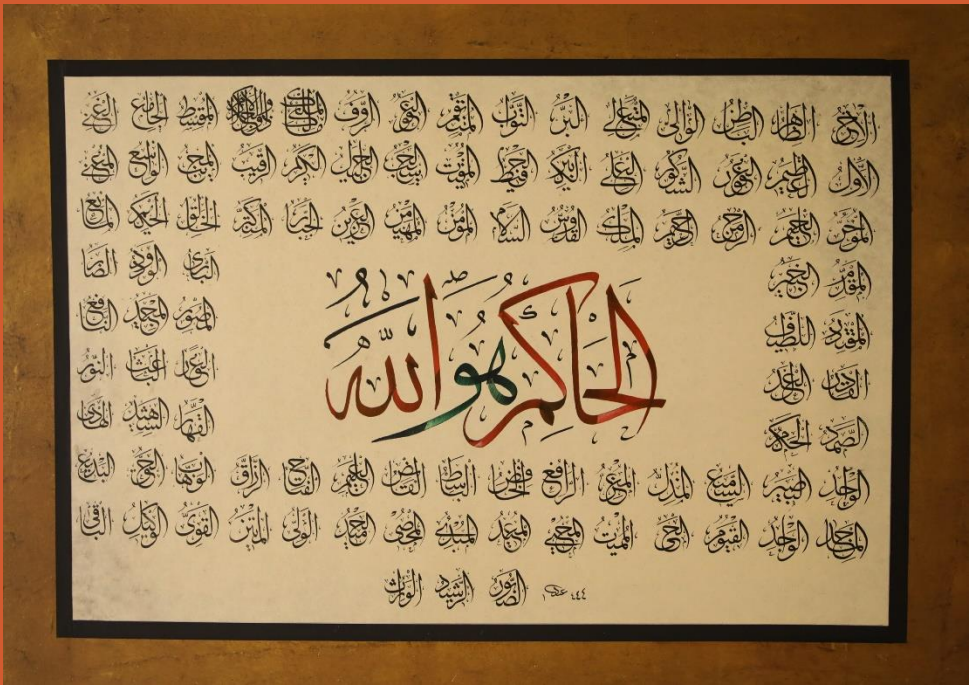 الآخر الظاهر الباطن الوالي المتعالي البر التواب المنتقم العفو الرؤف مالك الملك ذوالجلال والاكرام المقسط الجامع الغني
الأول العظيم الغفور الشكور العلي الكبير الحفيظ المقيت الحسيب الجليل الكريم الرقيب المجيب الواسع المغني
المؤخر الحليم الرحمن الرحيم الملك القدوس السلام المؤمن المهيمن العزيز الجبار المتكبر الخالق الحكيم المانع
المقدم الخبير البارئ الودود الضار
المقتدر اللطيف المصور المجيد النافع
القادر العدل الغفار الباعث النور
الصمد الحكم القهار الشهيد الهادي
الحاكم هو الله
الواحد البصير السميع المذل المعز الرافع الخافض الباسط القابض العليم الفتاح الرزاق الوهاب الحق البديع
الماجد الواجد القيوم الحي المميت المحيي المعيد المبدئ المحصي الحميد الولي المتين القوي الوكيل الباقي
الصبور الرشيد الوارث